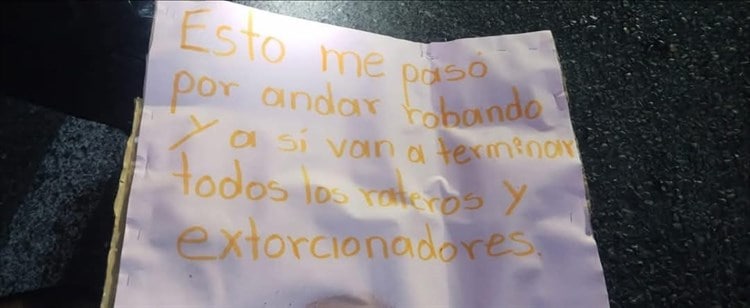 Esto me pasó
por andar robando
Y a si van a terminar
todos los rateros y
extorcionadores.